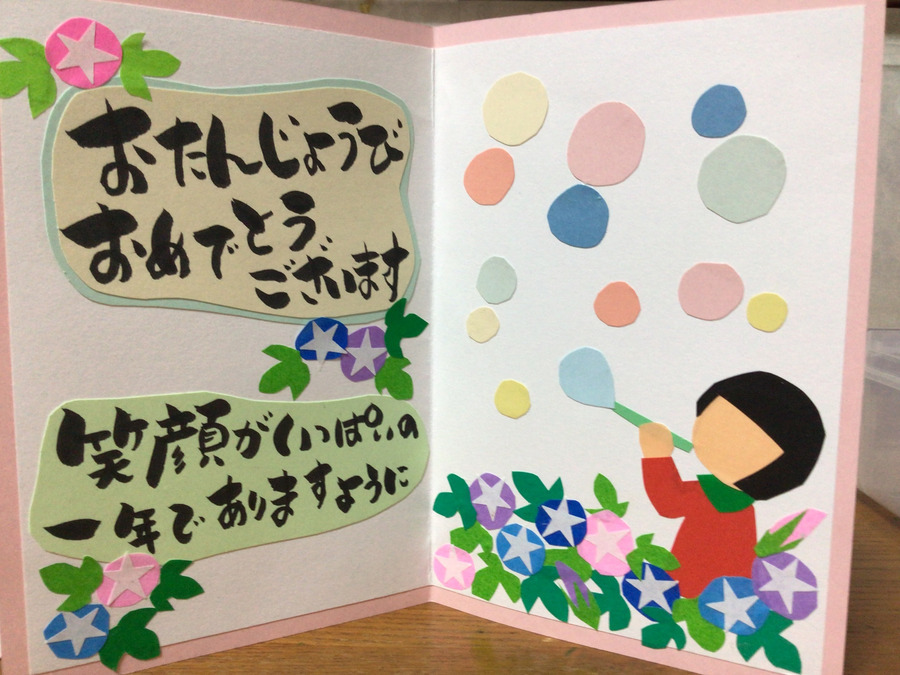 おたんじょうび
おめでとう
ございます
笑顔がいっぱいの
一年でありますように